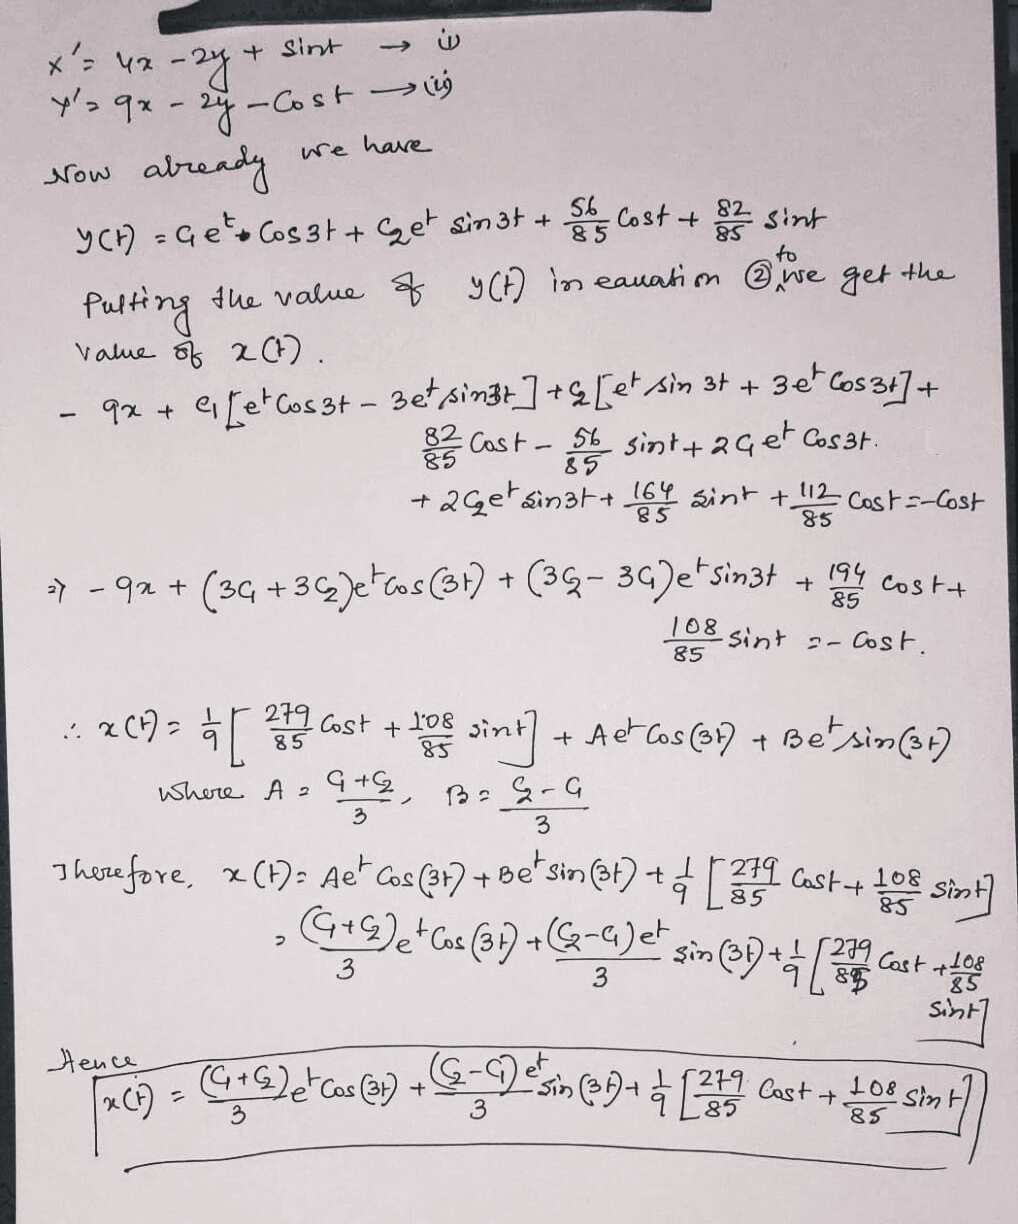 x' = 4x - 2y + sint → (i)
y' = 9x - 2y - Cost → (ii)
Now already we have
y(t) = C₁e^t Cos3t + C₂e^t sin3t + 56/85 Cost + 82/85 sint
Putting the value of y(t) in eauation ② to we get the
value of x(t).
- 9x + C₁[e^t Cos3t - 3e^t sin3t] + C₂[e^t sin 3t + 3e^t Cos3t] +
82/85 Cost - 56/85 sint + 2C₁e^t Cos3t.
+ 2C₂e^t sin3t + 164/85 sint + 112/85 Cost = -Cost
⇒ - 9x + (3C₁ + 3C₂)e^t Cos(3t) + (3C₂ - 3C₁)e^t sin3t + 194/85 cost +
108/85 sint = - Cost.
∴ x(t) = 1/9 [279/85 Cost + 108/85 sint] + Ae^t Cos(3t) + Be^t sin(3t)
where A = C₁+C₂/3, B = C₂-C₁/3
Therefore, x(t) = Ae^t Cos(3t) + Be^t sin(3t) + 1/9 [279/85 Cost + 108/85 sint]
= (C₁+C₂)/3 e^t Cos(3t) + (C₂-C₁)e^t/3 sin(3t) + 1/9 [279/85 Cost + 108/85
sint]
Hence
x(t) = (C₁+C₂)/3 e^t Cos(3t) + (C₂-C₁)/3 e^t sin(3t) + 1/9 [279/85 Cost + 108/85 sint]